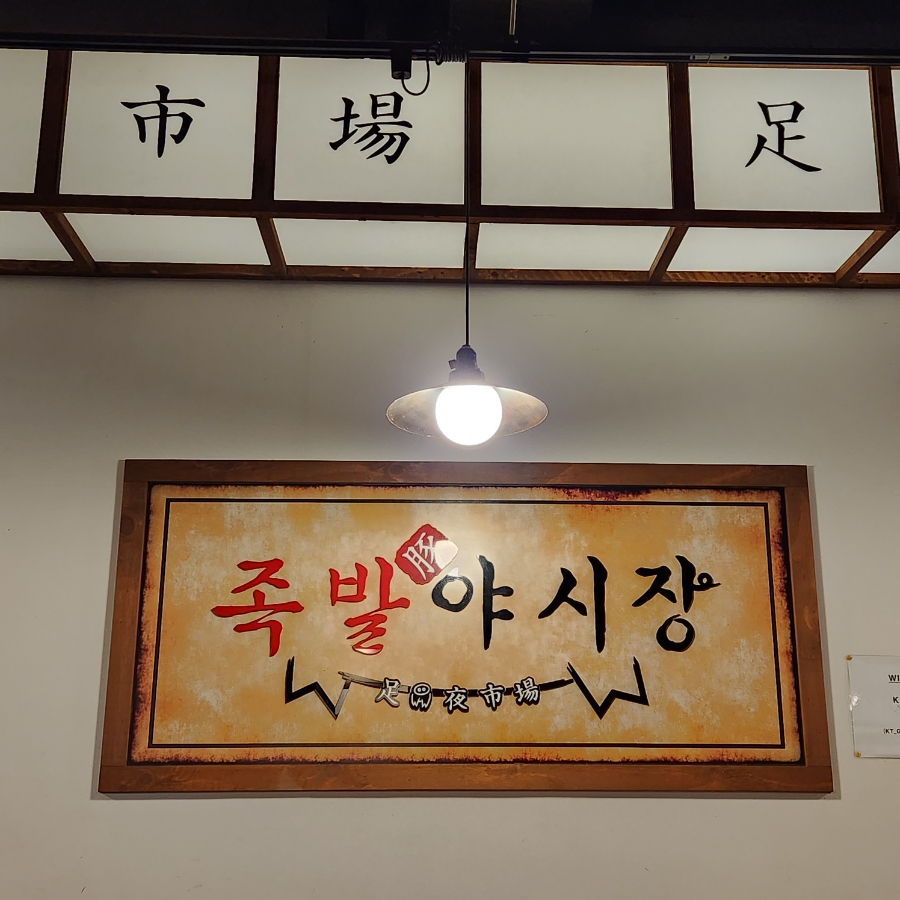 市 場 足
豚
족발야시장
足 夜市場
WI
K
(KT_G